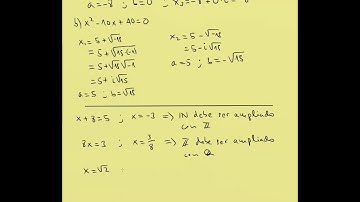 a = -8 ; b = 0 ; x₂ = -8 + 0·i = -8
b) x² - 10x + 40 = 0
x₁ = 5 + √-15
= 5 + √15·(-1)
= 5 + √15 √-1
= 5 + i√15
a = 5 ; b = √15
x₂ = 5 - √-15
= 5 - i√15
a = 5 ; b = -√15
x + 8 = 5 ; x = -3 ⇒ ℕ debe ser ampliado
con ℤ
8x = 3 ; x = 3/8 ⇒ ℤ debe ser ampliado
con ℚ
x = √2